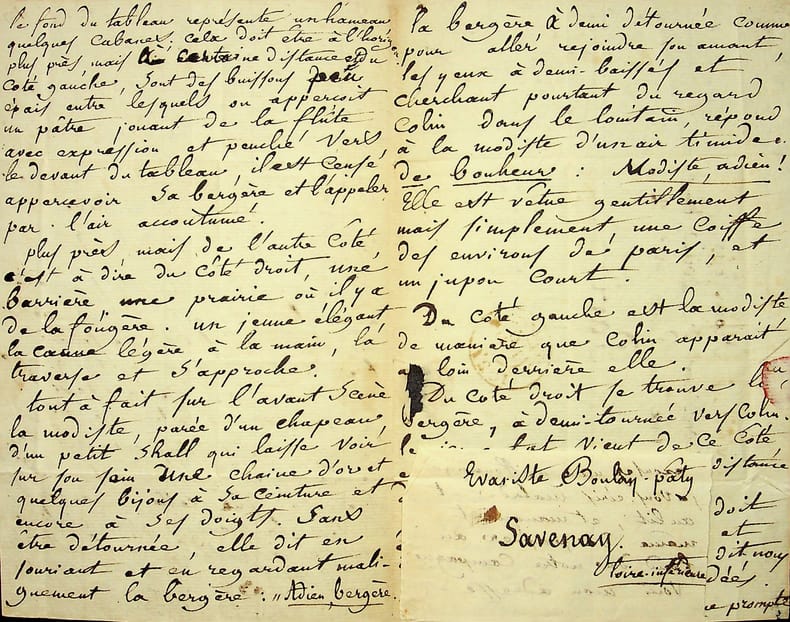 le fond du tableau représente un hameau
quelques cabanes. cela doit être à l'hori
plus près, mais à certaine distance et du
coté gauche, sont des buissons peu
épais entre lesquels on apperçoit
un pâtre jouant de la flûte
avec expression et penché vers
le devant du tableau, il est censé
appercevoir sa bergère et l'appeler
par l'air accoutumé.
plus près, mais de l'autre côté
c'est à dire du côté droit, une
barrière une prairie où il y a
de la fougère. un jeune élégant
la canne légère à la main, la
traverse et s'approche.
tout à fait sur l'avant scène
la modiste, parée d'un chapeau,
d'un petit shall qui laisse voir
sur son sein une chaine d'or et
quelques bijoux à sa ceinture et
encore à ses doigts. Sans
être détournée, elle dit en
souriant et en regardant mali-
gnement la bergère : "Adieu, bergère
la bergère à demi détournée comme
pour aller rejoindre son amant,
les yeux à demi-baissés et
cherchant pourtant du regard
Colin dans le lointain, répond
à la modiste d'un air timide
de bonheur : Modiste, adieu !
Elle est vêtue gentillement
mais simplement une coiffe
des environs de paris, et
un jupon court.
Du coté gauche est la modiste,
de manière que Colin apparait
au loin derrière elle.
Du coté droit se trouve la
bergère, à demi-tournée vers Colin.
le vient de ce coté
distance
Evariste Boulay-paty
doit
Savenay.
et
dit nous
loire-inférieure
dées.
ce prompte